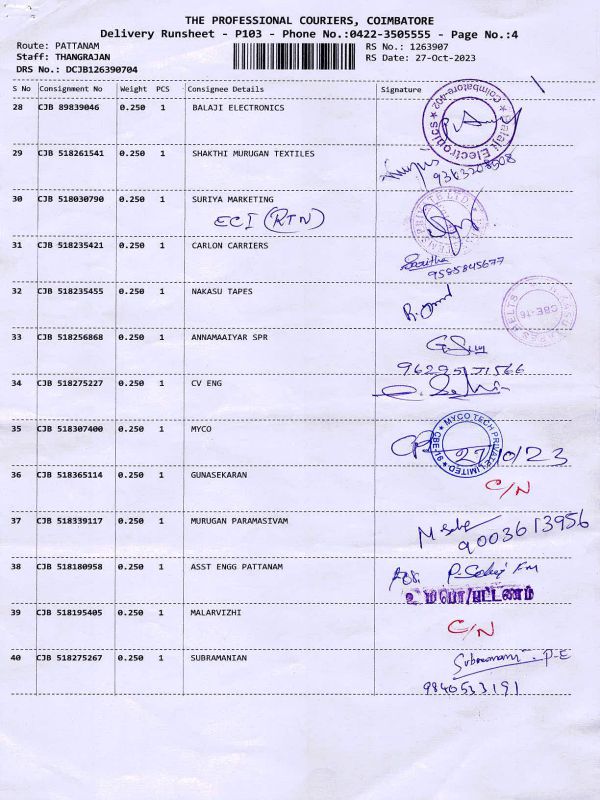 THE PROFESSIONAL COURIERS, COIMBATORE
Delivery Runsheet - P103 - Phone No.:0422-3505555 - Page No.:4
Route: PATTANAM RS No.: 1263907
Staff: THANGRAJAN RS Date: 27-Oct-2023
DRS No.: DCJB126390704
S No Consignment No Weight PCS Consignee Details Signature
28 CJB 89839046 0.250 1 BALAJI ELECTRONICS
Balaji Electronics ★ Coimbatore-402 ★
29 CJB 518261541 0.250 1 SHAKTHI MURUGAN TEXTILES
9363208508
30 CJB 518030790 0.250 1 SURIYA MARKETING
ECI (RTN)
31 CJB 518235421 0.250 1 CARLON CARRIERS
Saritha
9585845677
32 CJB 518235455 0.250 1 NAKASU TAPES
CBE-16
33 CJB 518256868 0.250 1 ANNAMAAIYAR SPR
34 CJB 518275227 0.250 1 CV ENG
35 CJB 518307400 0.250 1 MYCO
★ MYCO TECH PRIVATE LIMITED ★ CBE-16
27/10/23
36 CJB 518365114 0.250 1 GUNASEKARAN
C/N
37 CJB 518339117 0.250 1 MURUGAN PARAMASIVAM
9003613956
38 CJB 518180958 0.250 1 ASST ENGG PATTANAM
39 CJB 518195405 0.250 1 MALARVIZHI
C/N
40 CJB 518275267 0.250 1 SUBRAMANIAN
9840533191